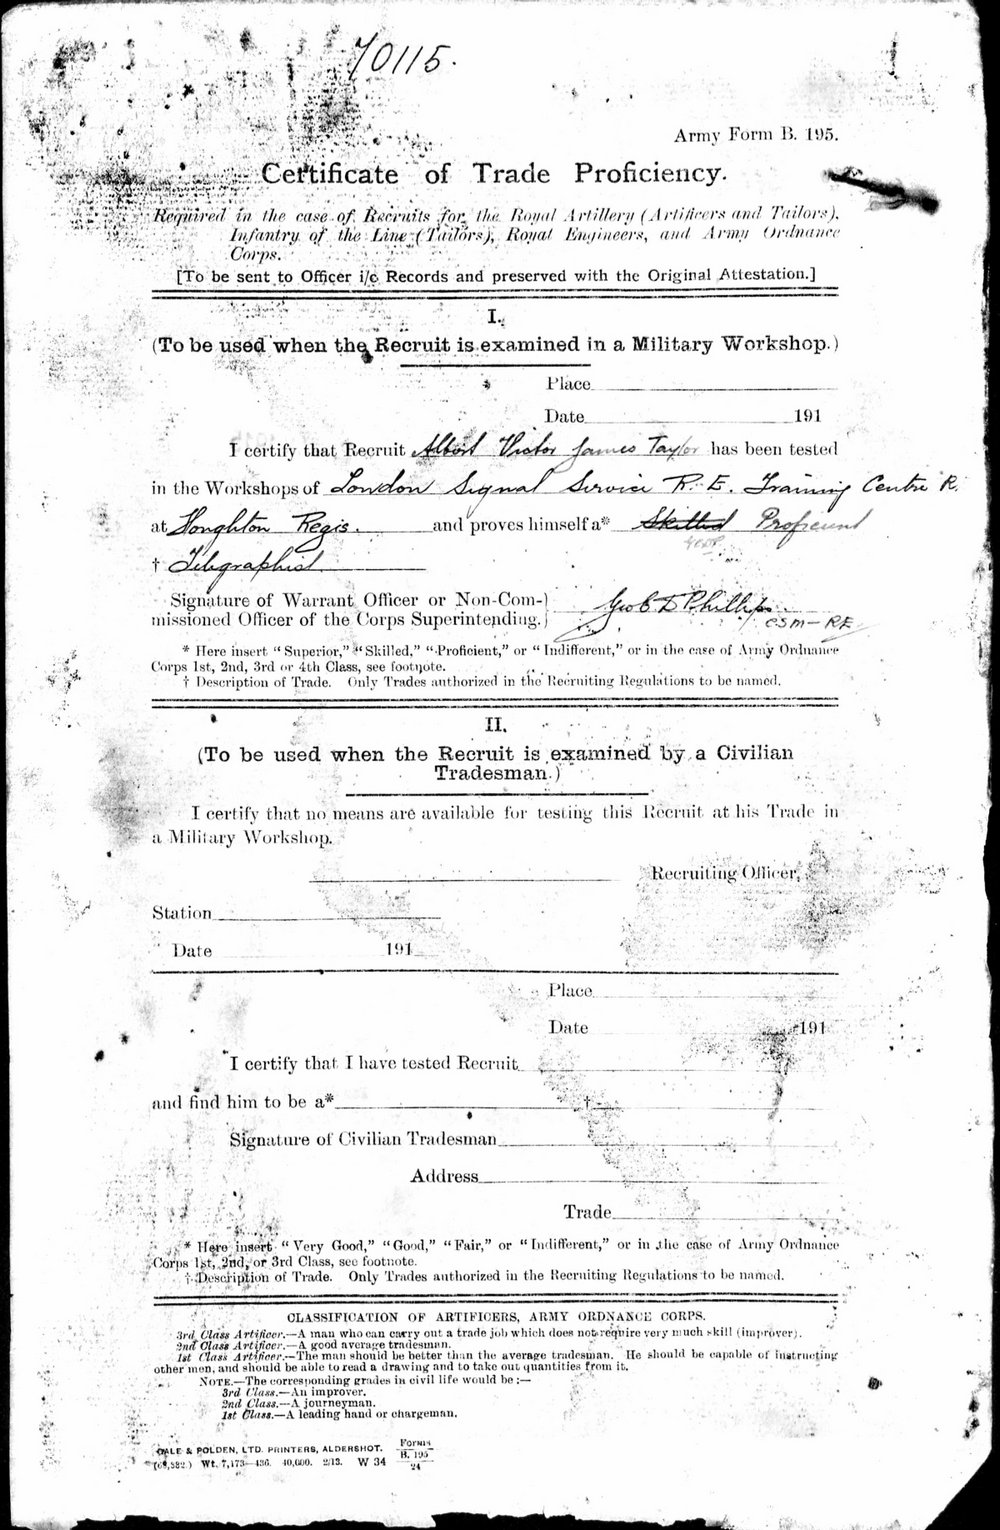 70115.
Army Form B. 195.
Certificate of Trade Proficiency.
Required in the case of Recruits for the Royal Artillery (Artificers and Tailors),
Infantry of the Line (Tailors), Royal Engineers, and Army Ordnance
Corps.
[To be sent to Officer i/c Records and preserved with the Original Attestation.]
I.
(To be used when the Recruit is examined in a Military Workshop.)
Place
Date 191
I certify that Recruit Albert Victor James Taylor has been tested
in the Workshops of London Signal Service R.E. Training Centre R.
at Houghton Regis. and proves himself a* Skilled Proficient
† Telegraphist
Signature of Warrant Officer or Non-Com-}
missioned Officer of the Corps Superintending.} Geo E D Phillips
CSM - RE
* Here insert "Superior," "Skilled," "Proficient," or "Indifferent," or in the case of Army Ordnance
Corps 1st, 2nd, 3rd or 4th Class, see footnote.
† Description of Trade. Only Trades authorized in the Recruiting Regulations to be named.
II.
(To be used when the Recruit is examined by a Civilian
Tradesman.)
I certify that no means are available for testing this Recruit at his Trade in
a Military Workshop.
Recruiting Officer,
Station
Date 191
Place
Date 191
I certify that I have tested Recruit
and find him to be a* †
Signature of Civilian Tradesman
Address
Trade
* Here insert "Very Good," "Good," "Fair," or "Indifferent," or in the case of Army Ordnance
Corps 1st, 2nd, or 3rd Class, see footnote.
† Description of Trade. Only Trades authorized in the Recruiting Regulations to be named.
CLASSIFICATION OF ARTIFICERS, ARMY ORDNANCE CORPS.
3rd Class Artificer.—A man who can carry out a trade job which does not require very much skill (improver).
2nd Class Artificer.—A good average tradesman.
1st Class Artificer.—The man should be better than the average tradesman. He should be capable of instructing
other men, and should be able to read a drawing and to take out quantities from it.
NOTE.—The corresponding grades in civil life would be:—
3rd Class.—An improver.
2nd Class.—A journeyman.
1st Class.—A leading hand or chargeman.
GALE & POLDEN, LTD. PRINTERS, ALDERSHOT. Forms
B. 195
(68,582.) Wt. 7,173—436. 40,000. 2/13. W 34
24